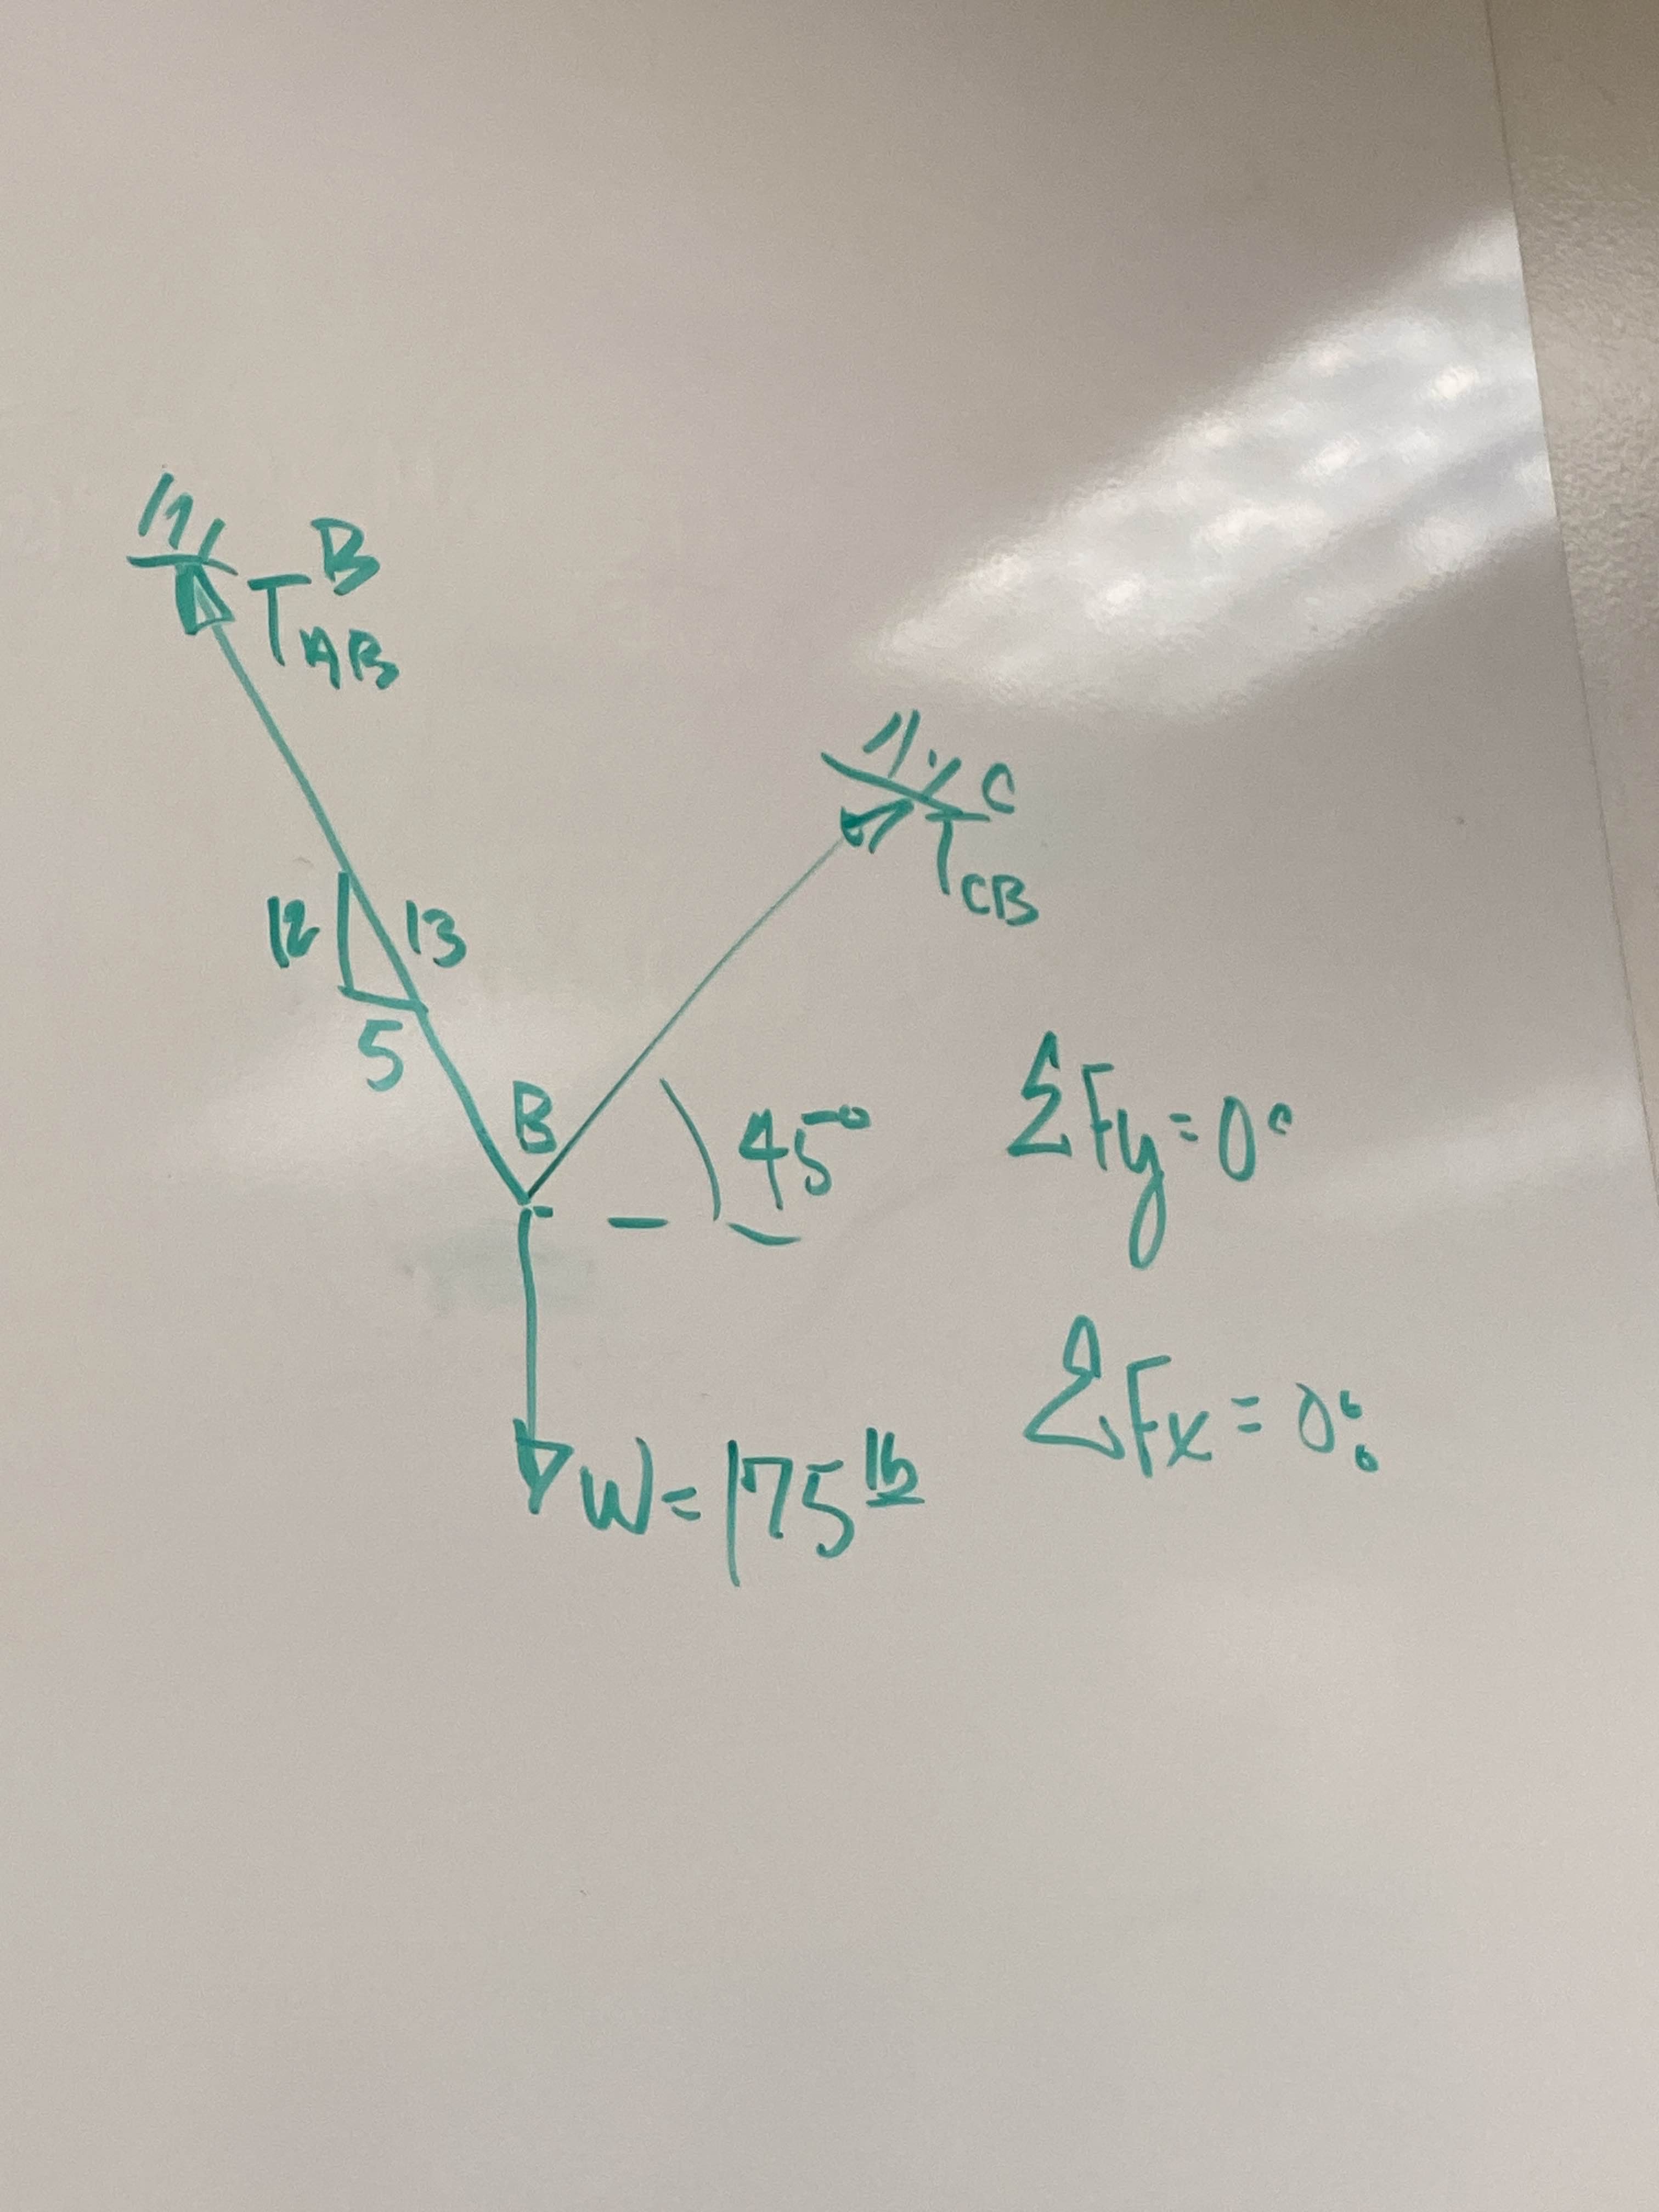 B
T_AB
C
T_CB
12
13
5
B
45°
ΣFy=0
ΣFx=0
W=175 lb